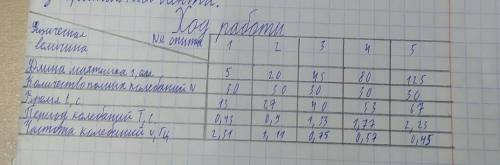 Ход работы
Физическая величина № опыта 1 2 3 4 5
Длина маятника l, см 5 20 45 80 125
Количество полных колебаний N 30 30 30 30 30
Время t, с 13 27 40 53 67
Период колебаний T, с. 0,43 0,9 1,33 1,77 2,23
Частота колебаний ν, Гц 2,31 1,11 0,75 0,57 0,45